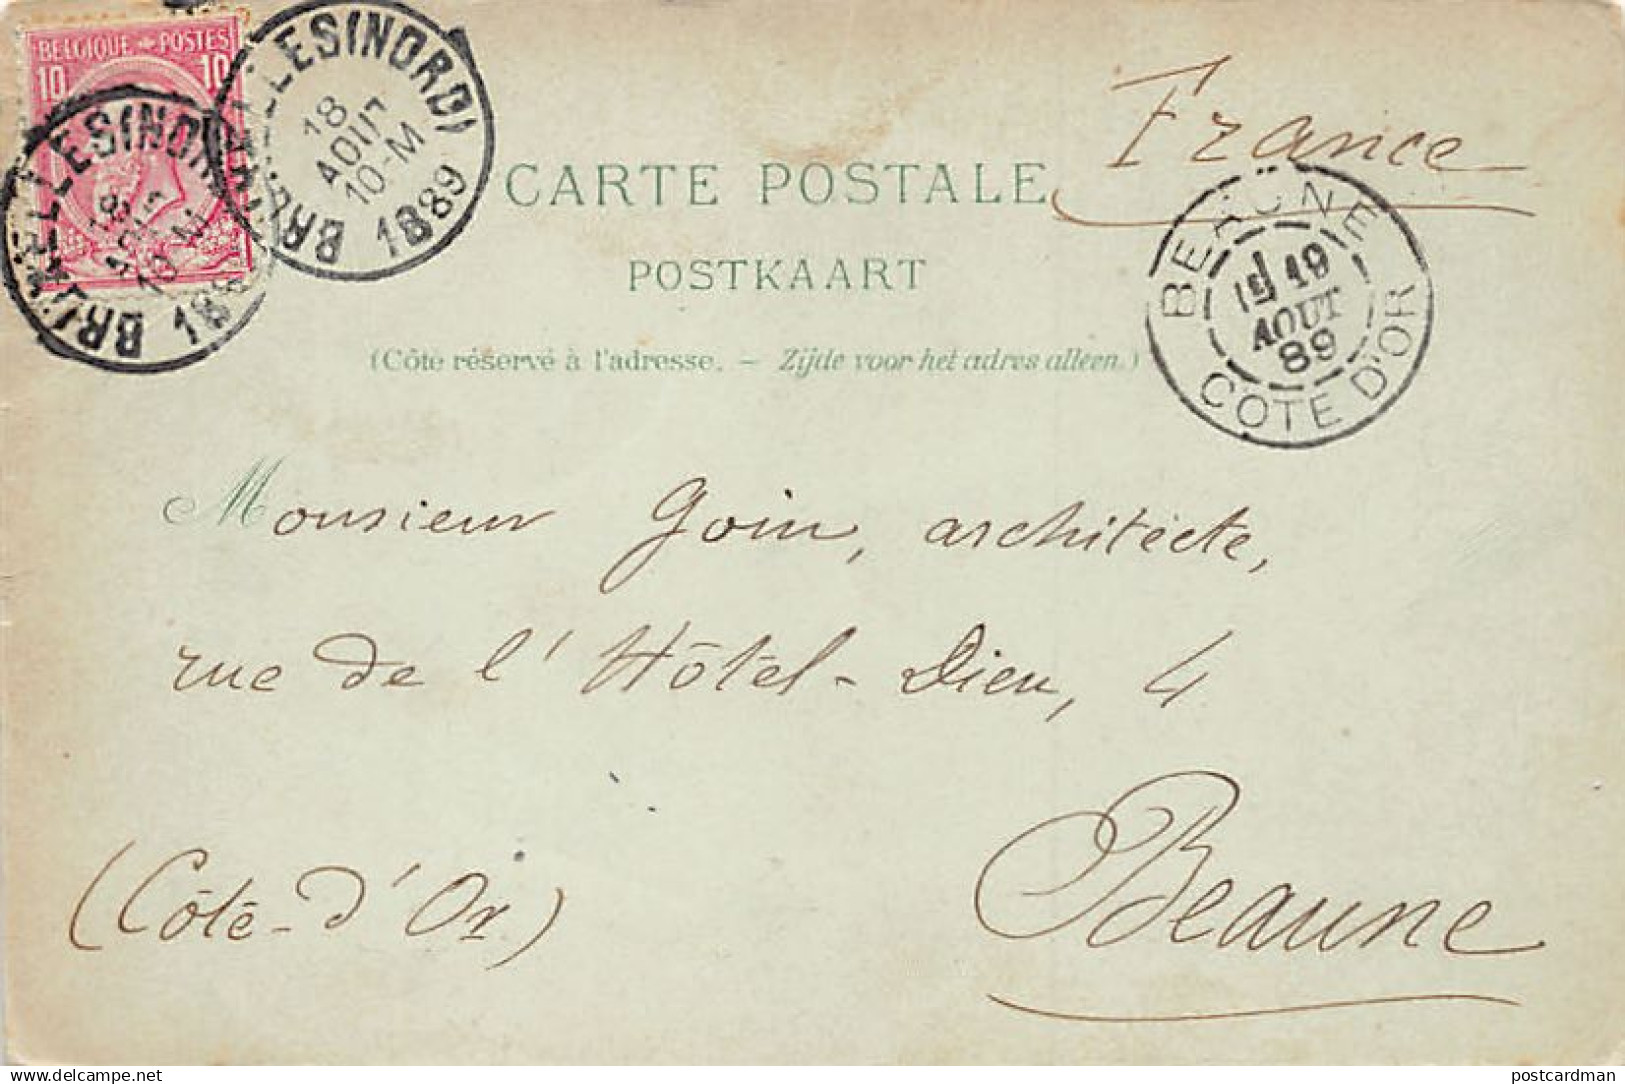 BELGIQUE POSTES
10 10
BRUXELLES (NORD)
18
AOUT
10-M
1889
BRUXELLES (NORD)
18
10-M
France
CARTE POSTALE
POSTKAART
(Côte réservé à l'adresse. – Zijde voor het adres alleen.)
BEAUNE
19
AOUT
89
COTE D'OR
Monsieur Goin, architecte,
rue de l'Hôtel-Dieu, 4
Beaune
(Côte-d'Or)
delcampe.net
postcardman